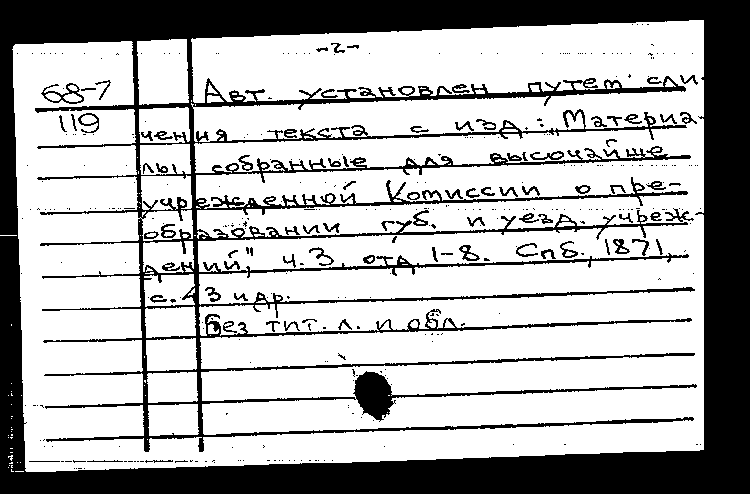 -2-
68-7 Авт. установлен путем сли-
119 чения текста с изд.: „Материа-
лы, собранные для высочайше
учрежденной Комиссии о пре-
образовании губ. и уезд. учреж-
дений", ч. 3, отд. 1-8. Спб., 1871,
с. 43 и др.
Без тит. л. и обл.